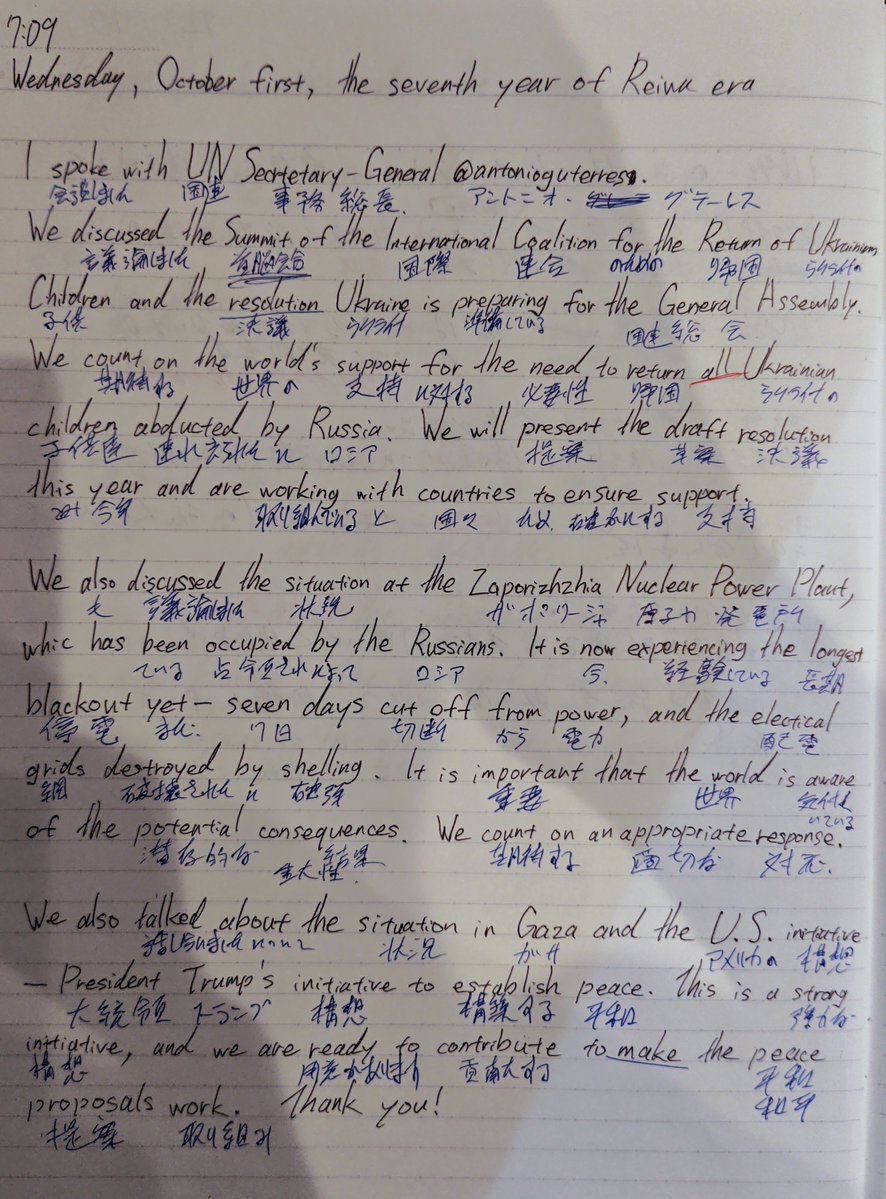 7:09
Wednesday, October first, the seventh year of Reiwa era
I spoke with UN Secretetary-General @antonioguterres.
会談しました 国連 事務総長 アントニオ・ グテーレス
We discussed the Summit of the International Coalition for the Return of Ukrainian
議論しました 首脳会合 国際 連合 のための 帰国 ウクライナの
Children and the resolution Ukraine is preparing for the General Assembly.
子供 決議 ウクライナ 準備している 国連総会
We count on the world's support for the need to return all Ukrainian
期待する 世界の 支持 に対する 必要性 帰国 ウクライナの
children abducted by Russia. We will present the draft resolution
子供達 連れ去られた に ロシア 提案 草案 決議
this year and are working with countries to ensure support.
今年 取り組んでいる と 国々 確かにする 支持
We also discussed the situation at the Zaporizhzhia Nuclear Power Plant,
も 議論しました 状況 ザポリージャ 原子力 発電所
whic has been occupied by the Russians. It is now experiencing the longest
ている 占領され によって ロシア 今 経験している 長期
blackout yet — seven days cut off from power, and the electical
停電 まだ 7日 切断 から 電力 配電
grids destroyed by shelling. It is important that the world is aware
網 破壊された に 砲弾 重要 世界 気付いている
of the potential consequences. We count on an appropriate response.
潜在的な 結果 重大性 期待する 適切な 対応
We also talked about the situation in Gaza and the U.S. initiative
話し合いました について 状況 ガザ アメリカの 構想
— President Trump's initiative to establish peace. This is a strong
大統領 トランプ 構想 構築する 平和 強力な
initiative, and we are ready to contribute to make the peace
構想 用意があります 貢献する 平和
proposals work. Thank you!
和平
提案 取り組み